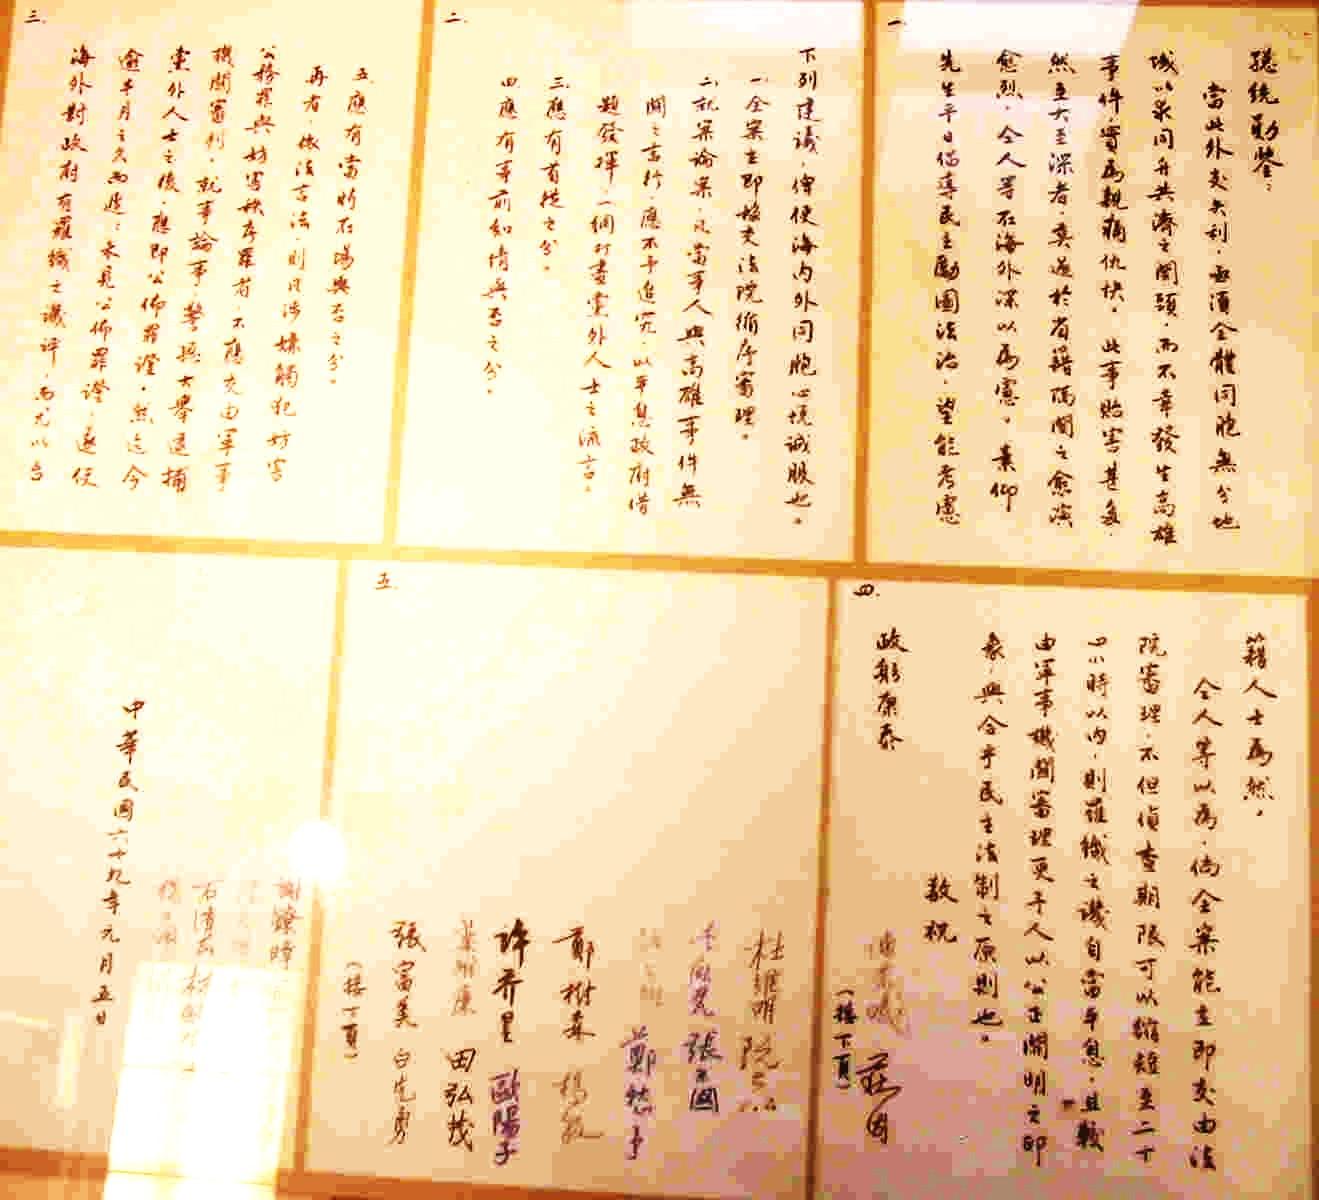 一.
總統勛鑒：
當此外交失利，亟須全體同胞無分地
域以求同舟共濟之關頭，而不幸發生高雄
事件，實為親痛仇快。此事貽害甚多，
然至大至深者，莫過於省籍隔閡之愈演
愈烈。仝人等在海外深以為憂。素仰
先生平日倡導民主勵圖法治，望能考慮
二.
下列建議，俾使海內外同胞心悅誠服也。
一、全案立即移交法院循序審理。
二、就案論案，凡當事人與高雄事件無
關之言行，應不予追究，以平息政府借
題發揮，一網打盡黨外人士之流言。
三、應有首從之分。
四、應有事前知情與否之分。
三.
五、應有當時在場與否之分。
再者，依法言法，則凡涉嫌觸犯妨害
公務罪與妨害秩序罪者，不應交由軍事
機關審判，就事論事，警總大舉逮捕
黨外人士之後，應即公佈罪證，然迄今
逾半月之久而遲遲未見公佈罪證，遂使
海外對政府有羅織之譏評，而尤以台
四.
籍人士為然。
仝人等以為，倘全案能立即交由法
院審理，不但偵查期限可以縮短至二十
四小時以內，則羅織之譏自當平息，且較
由軍事機關審理更予人以公正開明之印
象，與合乎民主法制之原則也。
敬祝
政躬康泰
莊因
(接下頁)
五.
杜維明
李歐梵 張系國
鄭愁予
鄭樹森 楊牧
許芥昱 歐陽子
葉維廉 田弘茂
張富美 白先勇
(接下頁)
謝鐐璋
石清正
中華民國六十九年元月五日